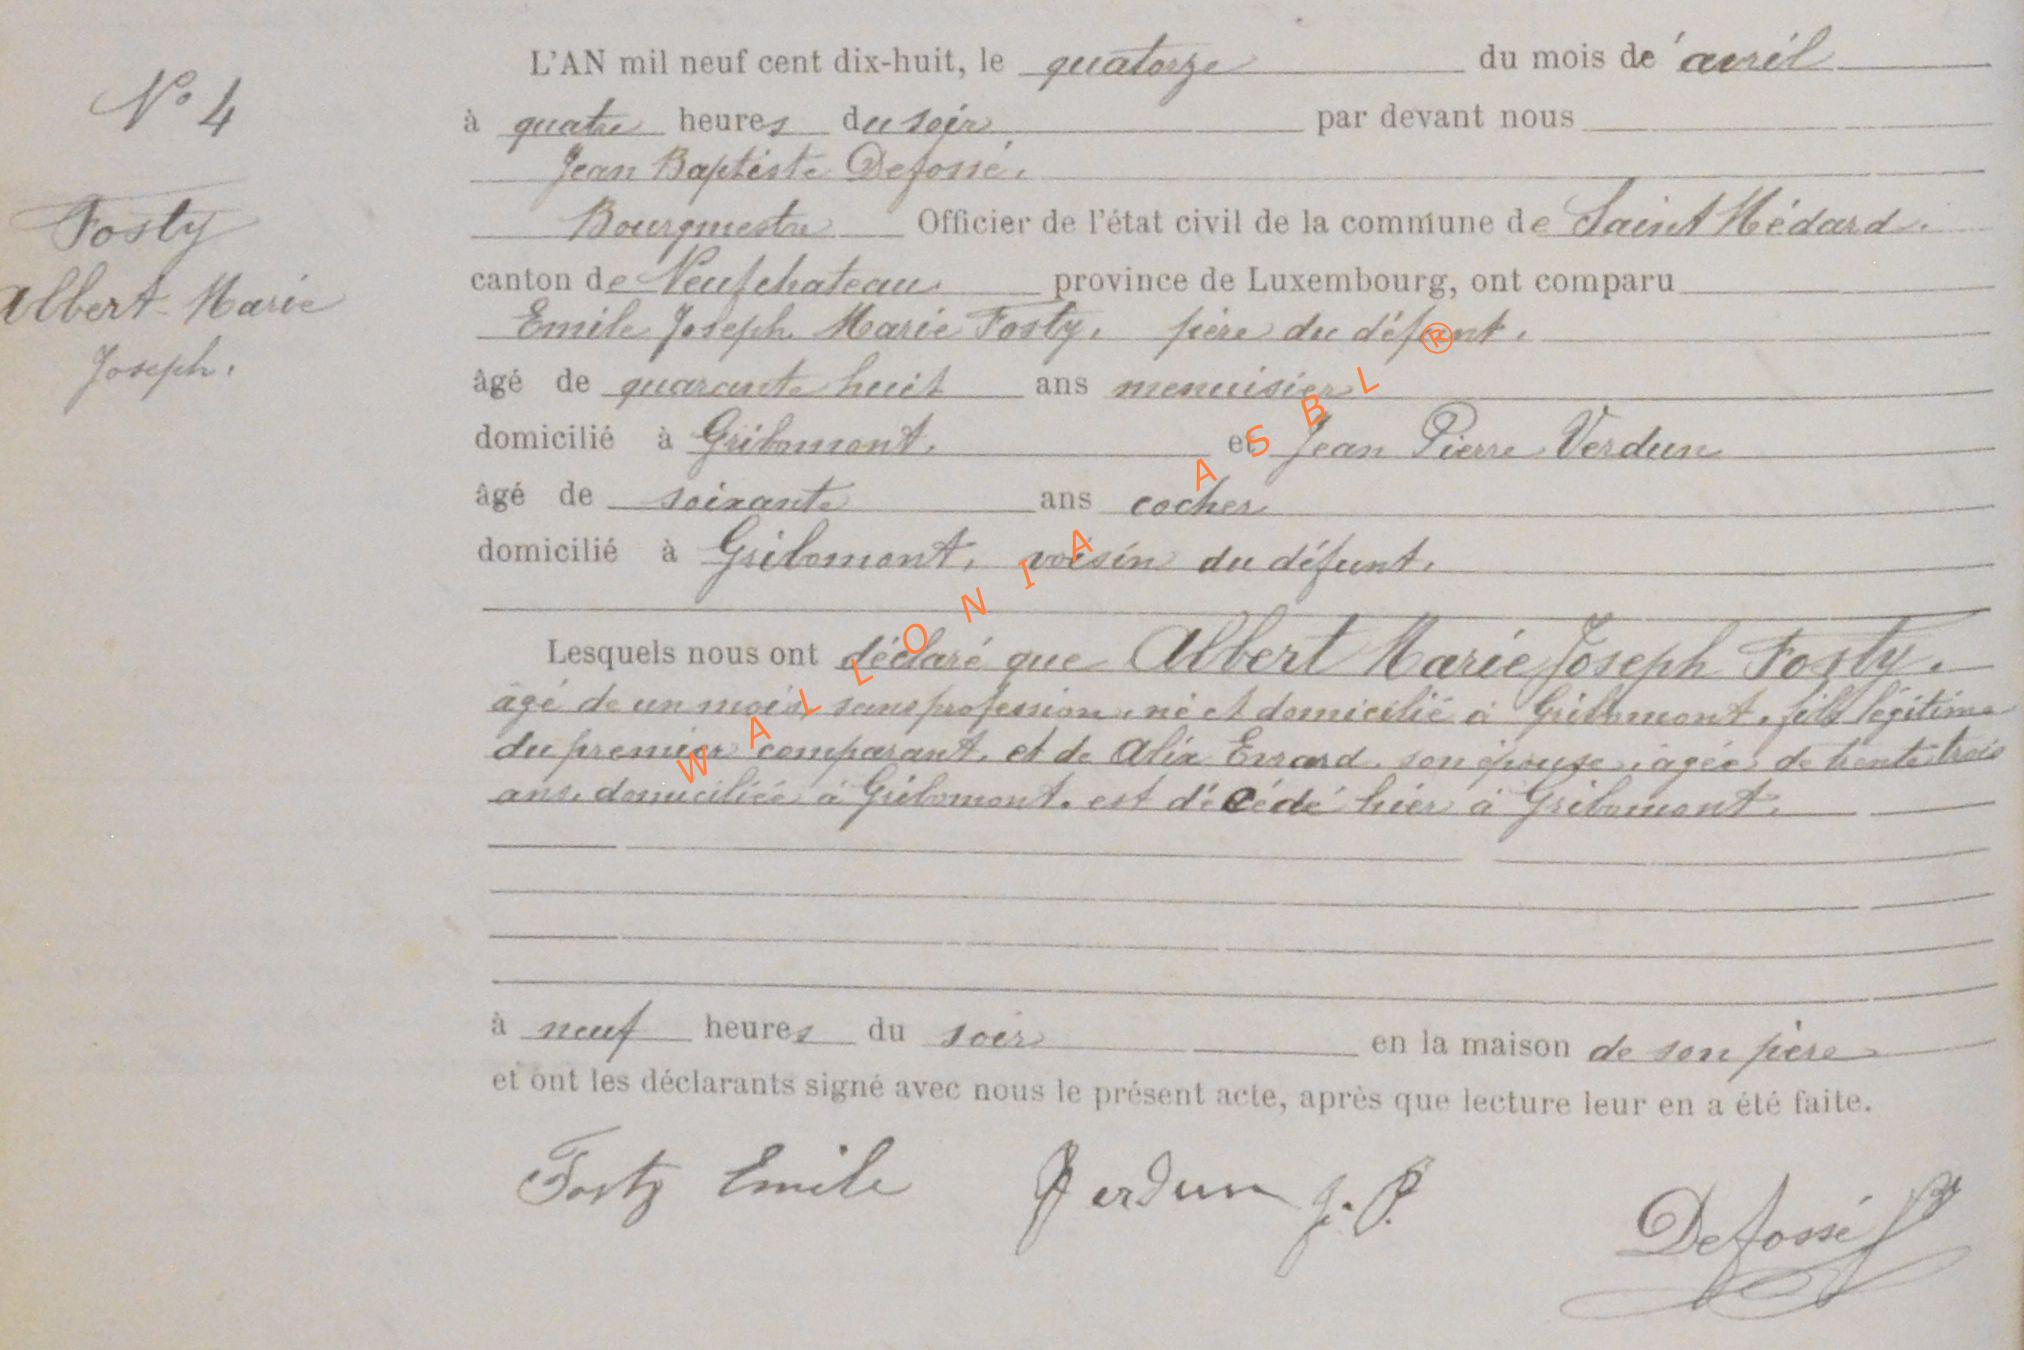 N° 4
Fosty
Albert Marie
Joseph.
L'AN mil neuf cent dix-huit, le quatorze du mois de avril
à quatre heures du soir par devant nous
Jean Baptiste Defossé.
Bourgmestre Officier de l'état civil de la commune de Saint Médard.
canton de Neufchateau province de Luxembourg, ont comparu
Emile Joseph Marie Fosty, père du défunt.
âgé de quarante huit ans menuisier
domicilié à Gribomont. et Jean Pierre Verdun
âgé de soixante ans cocher
domicilié à Gribomont, voisin du défunt.
Lesquels nous ont déclaré que Albert Marie Joseph Fosty.
âgé de un mois, sans profession, né et domicilié à Gribomont, fils légitime
du premier comparant, et de Alix Errard, son épouse, âgée de trente trois
ans, domiciliée à Gribomont. est décédé hier à Gribomont.
à neuf heures du soir en la maison de son père
et ont les déclarants signé avec nous le présent acte, après que lecture leur en a été faite.
Fosty Emile Verdun J. P. Defossé
WALLONIA ASBL ®